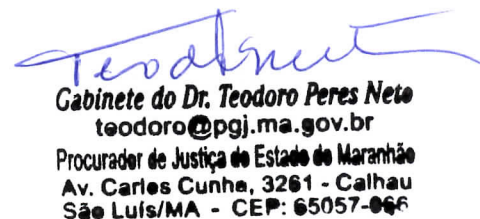 Gabinete do Dr. Teodoro Peres Neto
teodoro@pgj.ma.gov.br
Procurador de Justiça do Estado do Maranhão
Av. Carlos Cunha, 3261 - Calhau
São Luís/MA - CEP: 65057-066